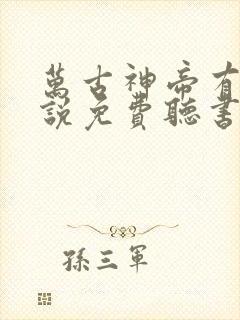 萬古神帝有
說免費聽書
孫三軍